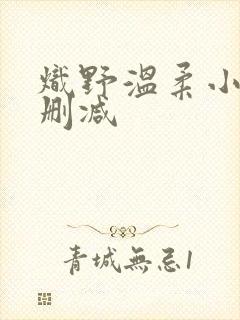 熾野溫柔小
刪減
青城無忌1